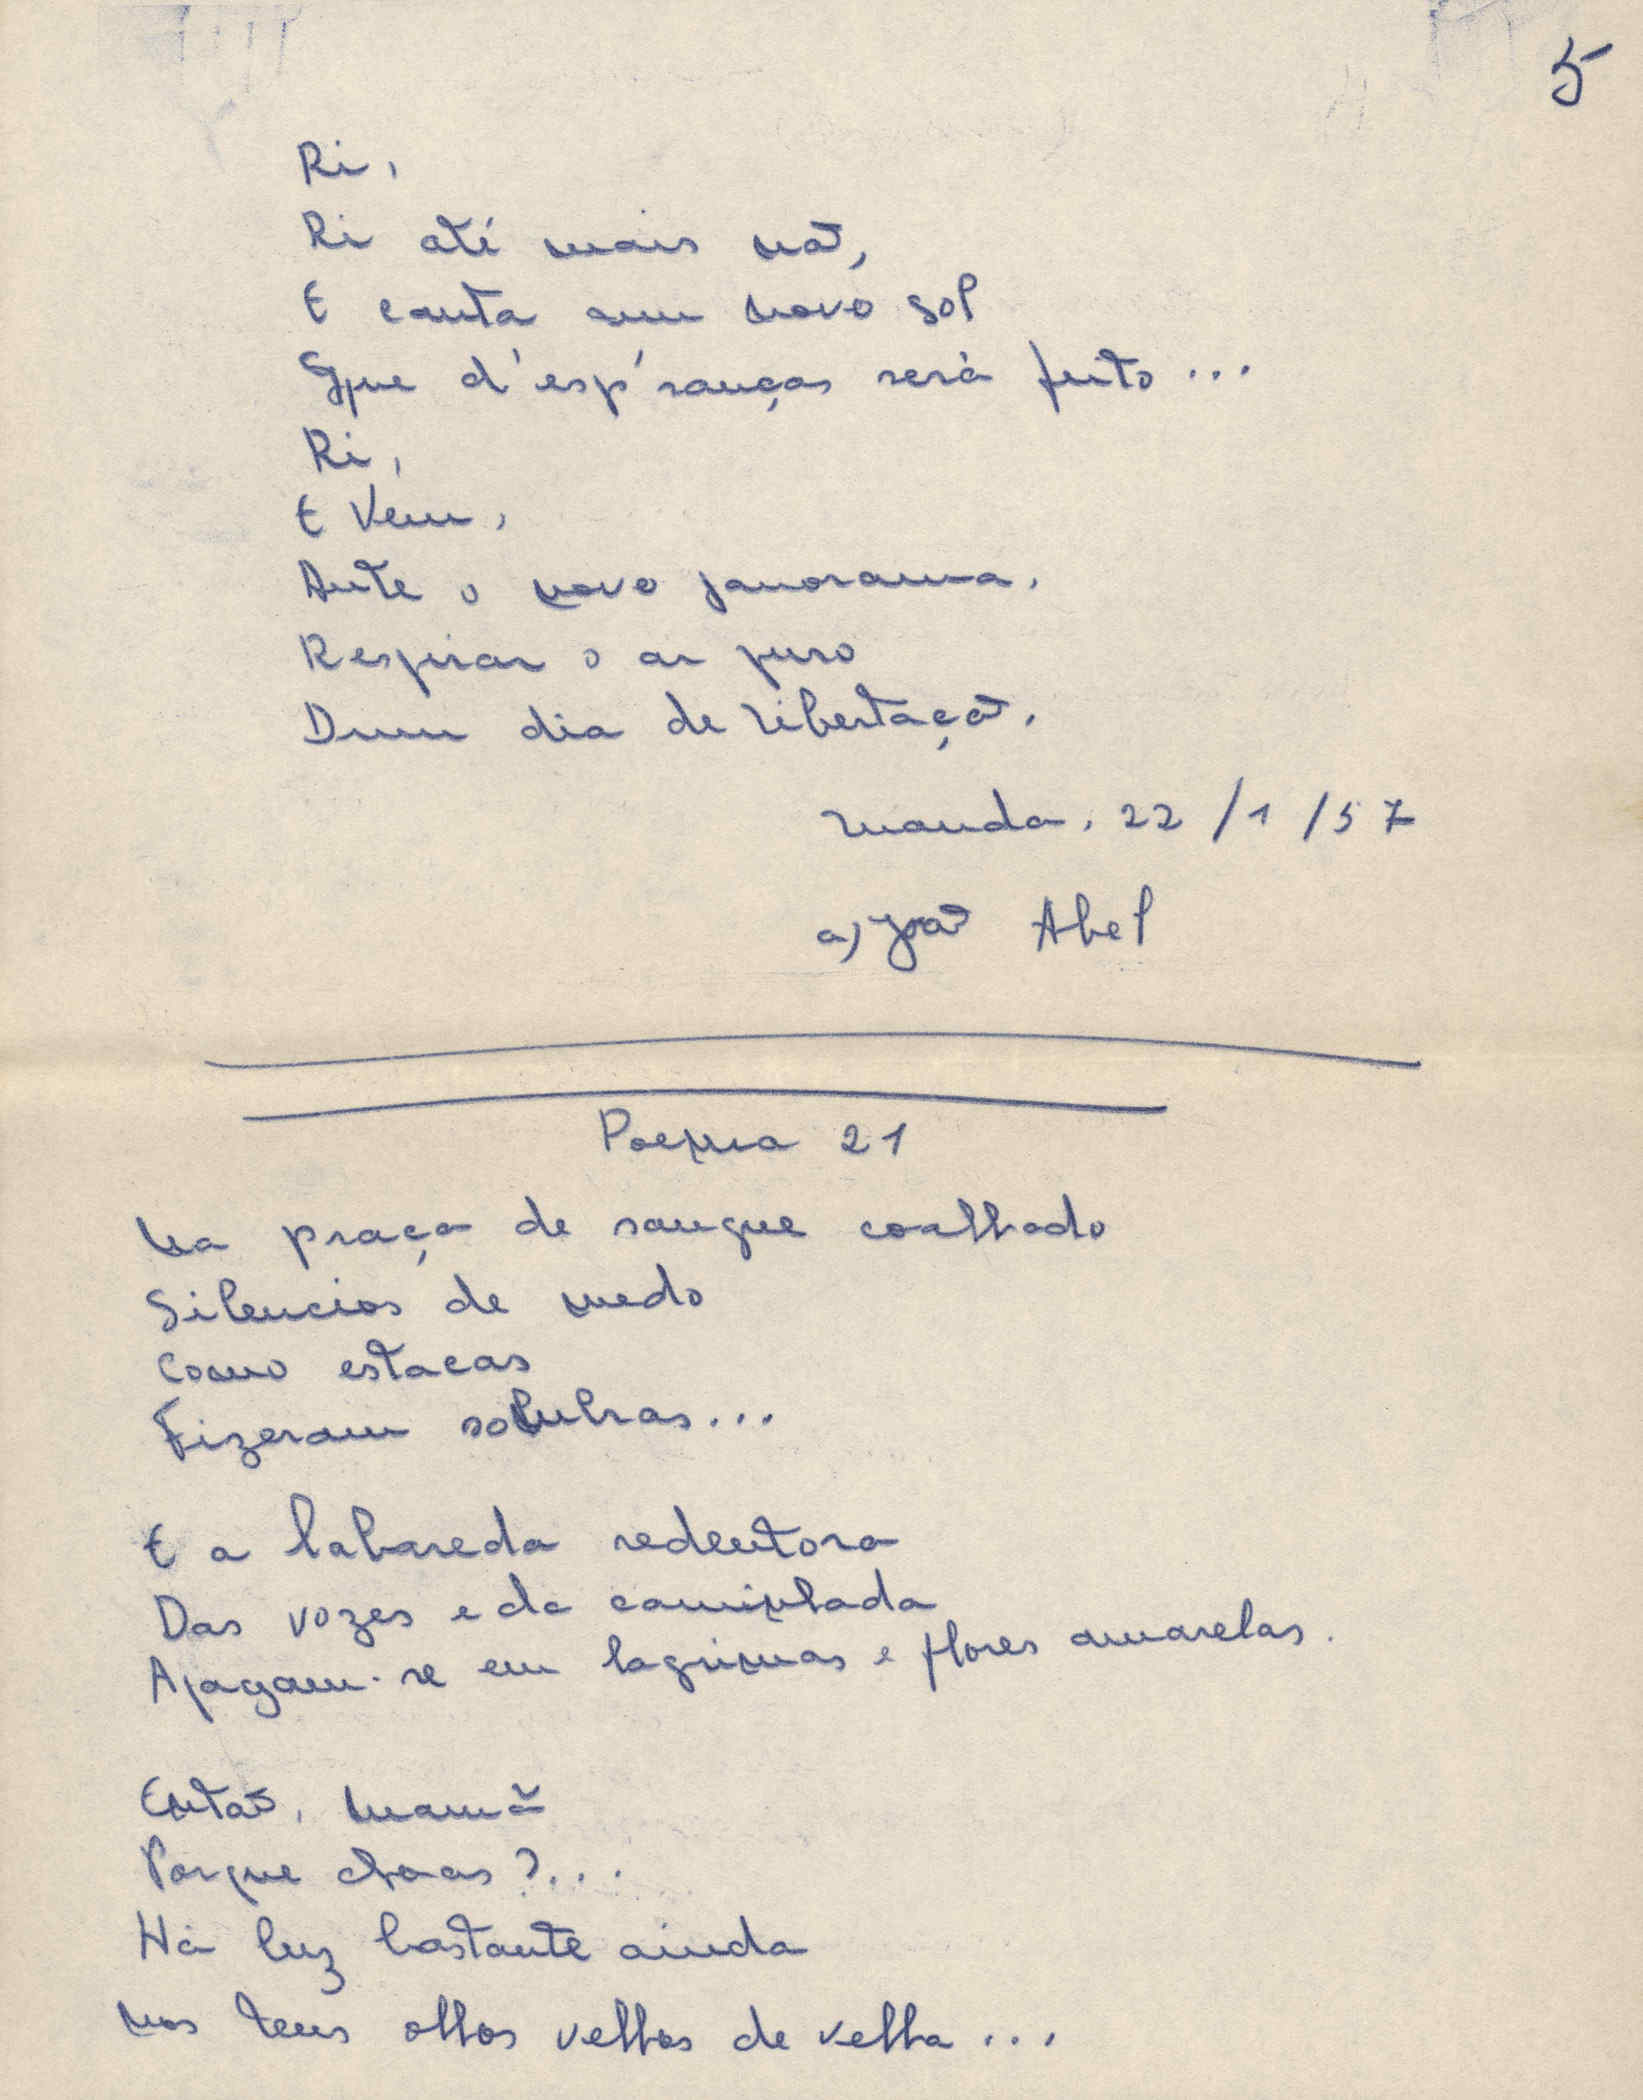 5
Ri,
Ri até mais não,
E canta num novo sol
Que d'esp'ranças será feito...
Ri,
E vem,
Ante o novo panorama,
Respirar o ar puro
Dum dia de libertação.
Luanda, 22/1/57
a) João Abel
Poema 21
Na praça de sangue coalhado
Silencios de medo
Como estacas
Fizeram sombras...
E a labareda redentora
Das vozes e da caminhada
Apagam-se em lagrimas e flores amarelas.
Então, mamã
Porque choras?...
Há luz bastante ainda
nos teus olhos velhos de velha...